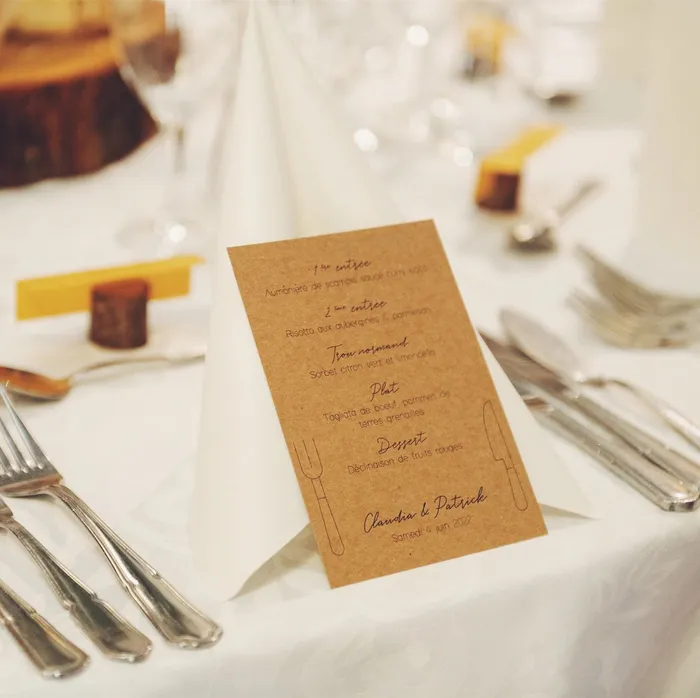 1ère entrée
Aumônière de scampis sauce curry coco
2ème entrée
Risotto aux aubergines & parmesan
Trou normand
Sorbet citron vert et limoncello
Plat
Tagliata de boeuf, pommes de
terres grenailles
Dessert
Déclinaison de fruits rouges
Claudia & Patrick
Samedi 4 juin 2022